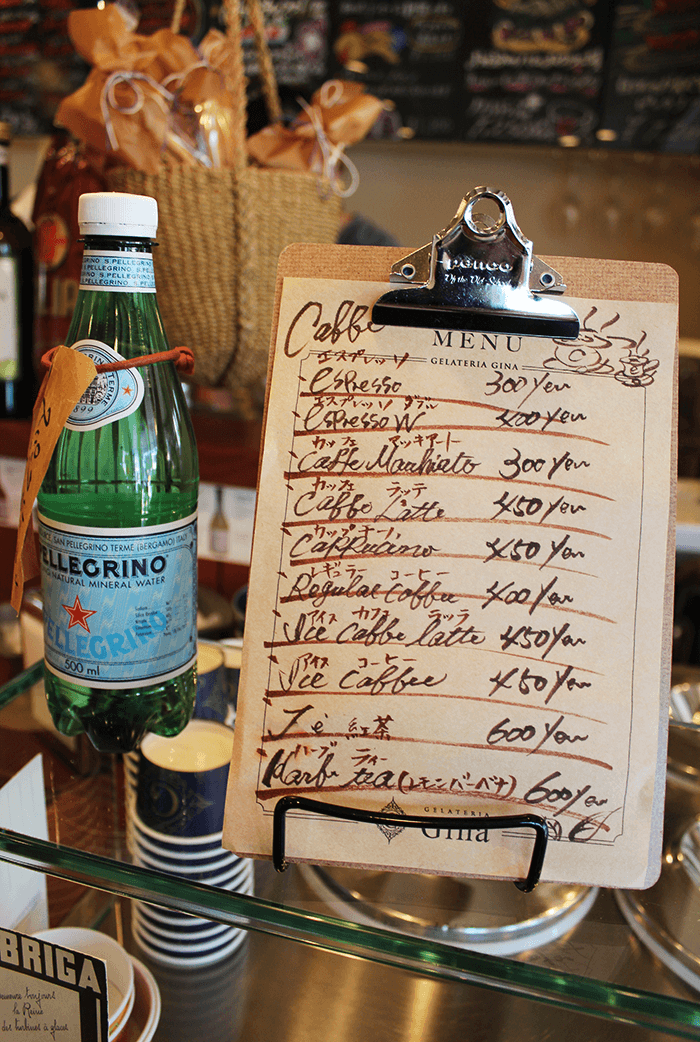 Caffe
penco
MENU
GELATERIA GINA
エスプレッソ
espresso 300 yen
エスプレッソ ダブル
espresso W 400 yen
カッフェ マッキアート
Caffe Macchiato 300 yen
カッフェ ラッテ
Caffe Latte 450 yen
カップチーノ
Cappucino 450 yen
レギュラー コーヒー
Regular coffee 400 yen
アイス カフェ ラッテ
Ice caffe latte 450 yen
アイス コーヒー
Ice coffee 450 yen
Té 紅茶 600 yen
ハーブ ティー
Harbe tea (レモンバーベナ) 600 yen
GELATERIA
Gina
S.PELLEGRINO
1899
SAN PELLEGRINO TERME (BERGAMO) ITALY
PELLEGRINO
NATURAL MINERAL WATER
PELLEGRINO
500 ml
BRIGA
toujours
la Reine
à glaces